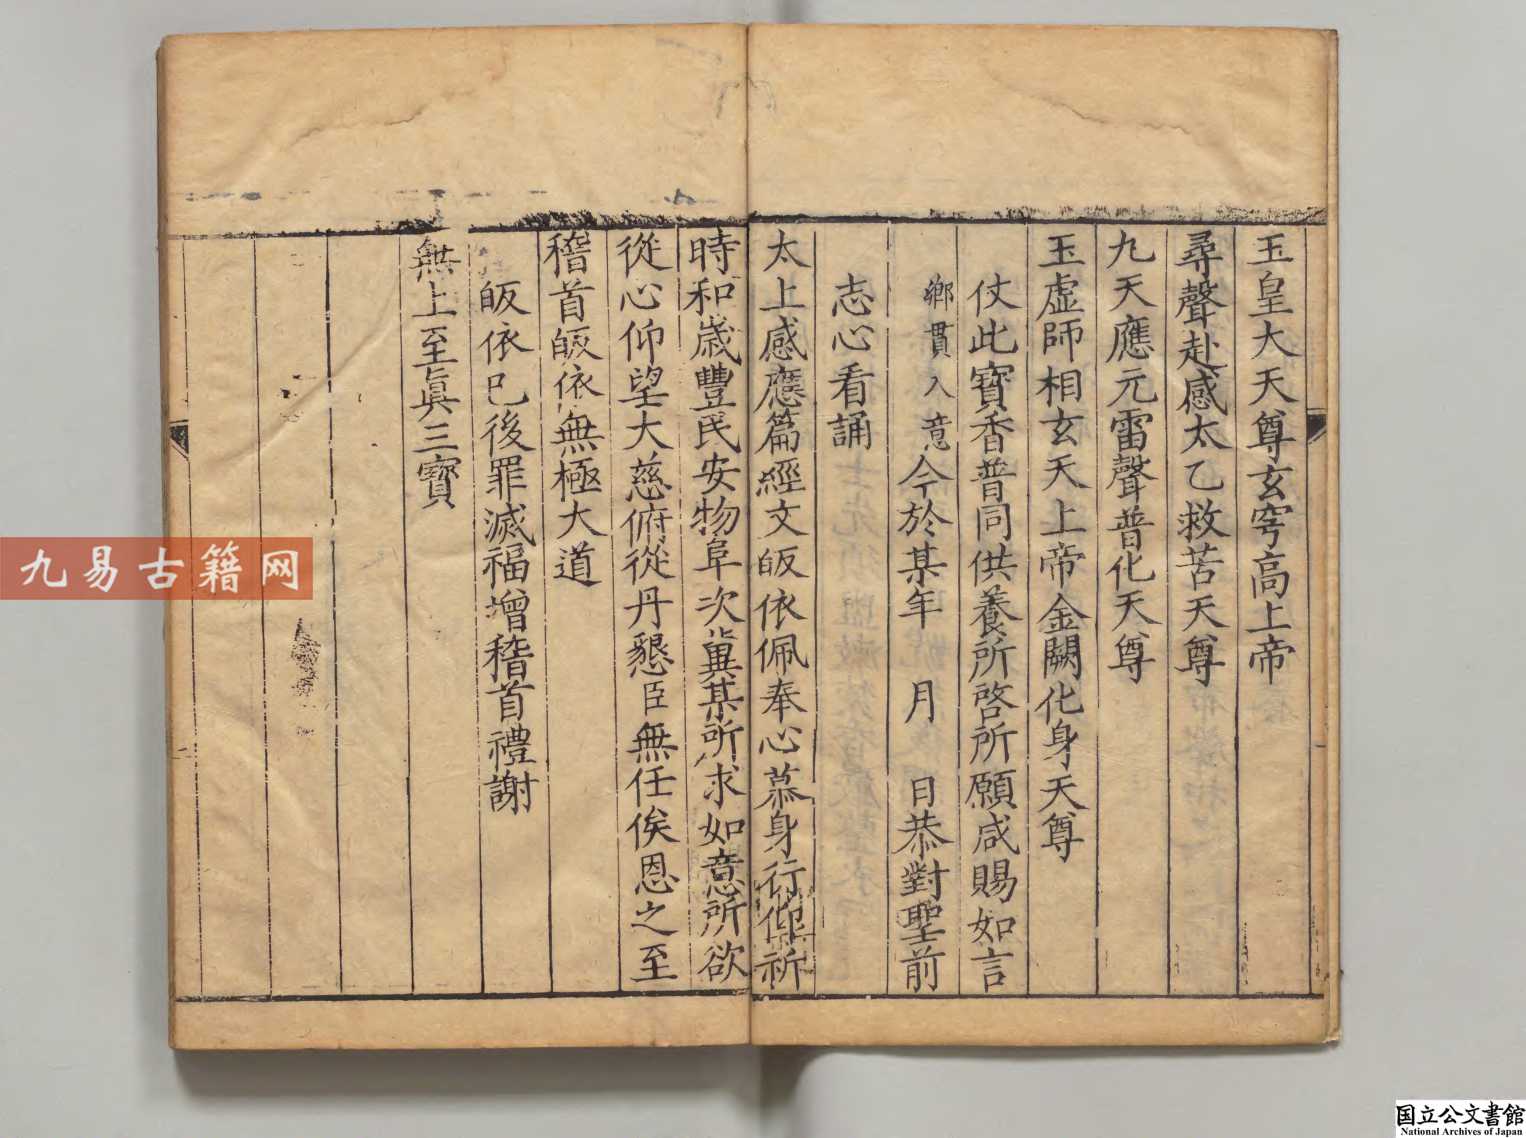 玉皇大天尊玄穹高上帝
尋聲赴感太乙救苦天尊
九天應元雷聲普化天尊
玉虛師相玄天上帝金闕化身天尊
仗此寶香普同供養所啓所願咸賜如言
鄉貫入意今於某年 月 日恭對聖前
志心看誦
太上感應篇經文皈依佩奉心慕身行仰祈
時和歲豐民安物阜次兾某所求如意所欲
從心仰望大慈俯從丹懇臣無任俟恩之至
稽首皈依無極大道
皈依已後罪滅福增稽首禮謝
無上至眞三寶
九易古籍网
国立公文書館
National Archives of Japan